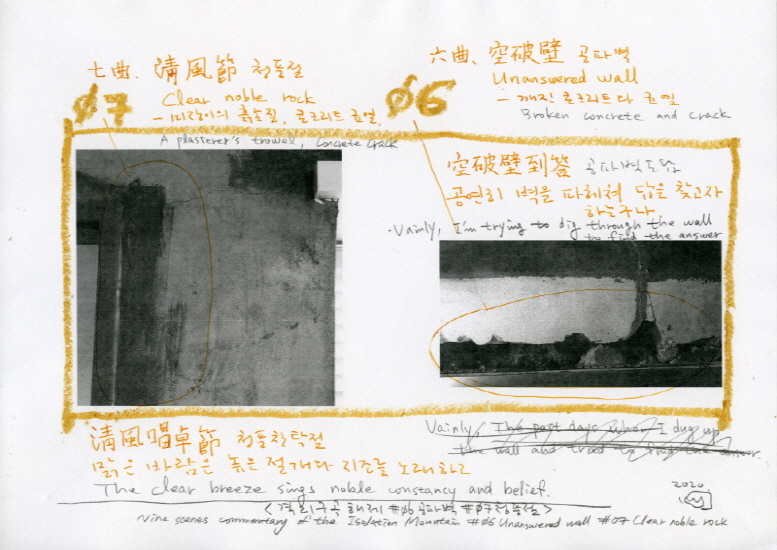 七曲. 清風節 청풍절
Ø7
Clear noble rock
- 미장이의 흙손질, 콘크리트 균열.
A plasterer's trowel, concrete crack
六曲、空破壁 공파벽
Ø6
Unanswered wall
- 깨진 콘크리트와 균열
Broken concrete and crack
空破壁到答 공파벽도답
공연히 벽을 파헤쳐 답을 찾고자
하는구나
·Vainly, I'm trying to dig through the wall
to find the answer
清風唱卓節 청풍창탁절
맑은 바람은 높은 절개와 지조를 노래하고
The clear breeze sings noble constancy and belief.
Vainly, The past days when I dug up
the wall and tried to find the answer.
2020
<격리구곡 해제 #Ø6 공파벽 #Ø7청풍절>
Nine scenes commentary of the Isolation Mountain #Ø6 Unanswered wall #Ø7 Clear noble rock